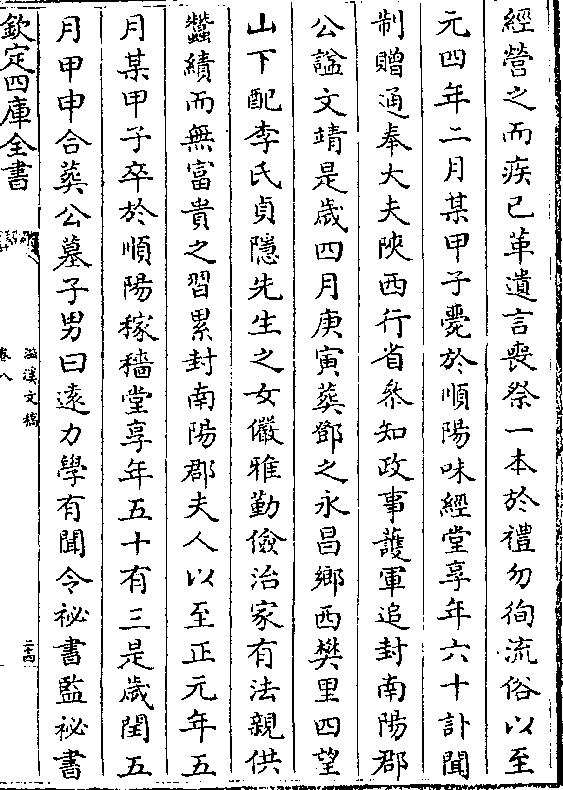 經營之而疾已革遺言喪祭一本於禮勿徇流俗以至
元四年二月某甲子薨於順陽味經堂享年六十訃聞
制贈通奉大夫陜西行省叅知政事護軍追封南陽郡
公諡文靖是歲四月庚寅葬鄧之永昌鄉西樊里四望
山下配李氏貞隱先生之女儼雅勤儉治家有法親供
蠶績而無富貴之習累封南陽郡夫人以至正元年五
月某甲子卒於順陽稼穡堂享年五十有三是歲閏五
月甲申合葬公墓子男曰遠力學有聞令祕書監祕書
欽定四庫全書
滋溪文稿
卷八
二十四